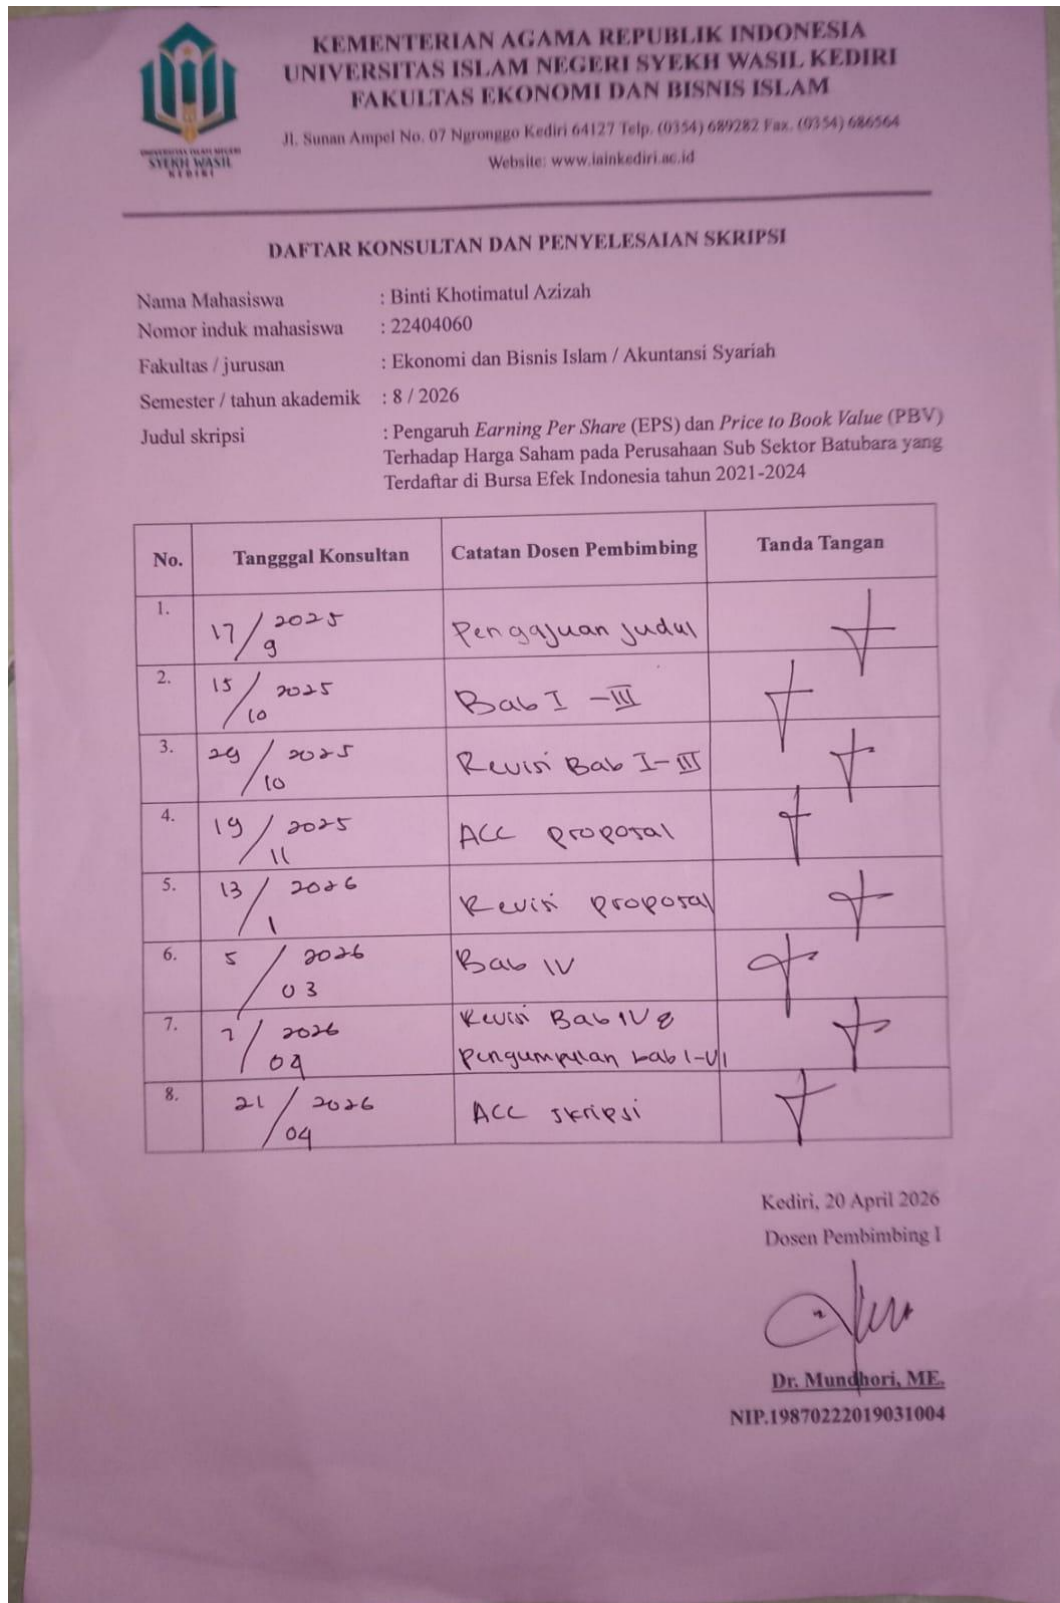 KEMENTERIAN AGAMA REPUBLIK INDONESIA
UNIVERSITAS ISLAM NEGERI SYEKH WASIL KEDIRI
FAKULTAS EKONOMI DAN BISNIS ISLAM
Jl. Sunan Ampel No. 07 Ngronggo Kediri 64127 Telp. (0354) 689282 Fax. (0354) 686564
Website: www.iainkediri.ac.id
UNIVERSITAS ISLAM NEGERI
SYEKH WASIL
KEDIRI
DAFTAR KONSULTAN DAN PENYELESAIAN SKRIPSI
Nama Mahasiswa : Binti Khotimatul Azizah
Nomor induk mahasiswa : 22404060
Fakultas / jurusan : Ekonomi dan Bisnis Islam / Akuntansi Syariah
Semester / tahun akademik : 8 / 2026
Judul skripsi : Pengaruh Earning Per Share (EPS) dan Price to Book Value (PBV)
Terhadap Harga Saham pada Perusahaan Sub Sektor Batubara yang
Terdaftar di Bursa Efek Indonesia tahun 2021-2024
No. Tangggal Konsultan Catatan Dosen Pembimbing Tanda Tangan
1. 17/9 2025 Pengajuan judul
2. 15/10 2025 Bab I - III
3. 29/10 2025 Revisi Bab I-III
4. 19/11 2025 ACC proposal
5. 13/1 2026 Revisi proposal
6. 5/03 2026 Bab IV
7. 7/04 2026 Revisi Bab IV &
pengumpulan bab I-VI
8. 21/04 2026 ACC skripsi
Kediri, 20 April 2026
Dosen Pembimbing I
Dr. Mundhori, ME.
NIP.19870222019031004